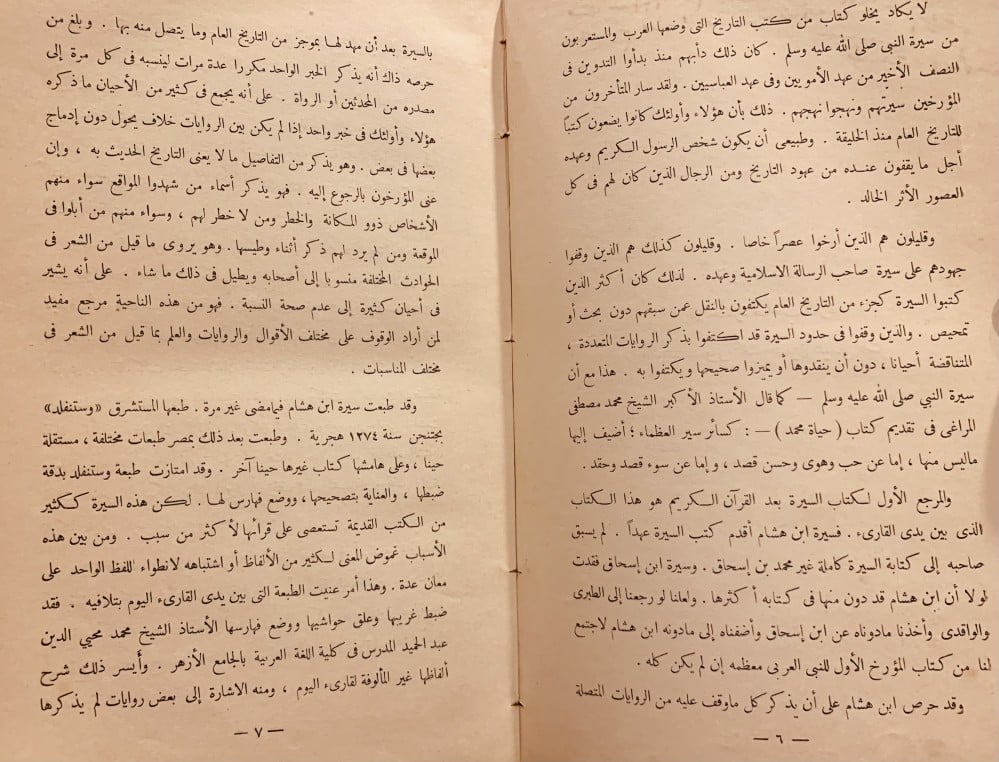 لا يكاد يخلو كتاب من كتب التاريخ التى وضعها العرب والمستعربون
من سيرة النبي صلى الله عليه وسلم . كان ذلك دأبهم منذ بدأوا التدوين فى
النصف الأخير من عهد الأمويين وفى عهد العباسيين . ولقد سار المتأخرون من
المؤرخين سيرتهم ونهجوا نهجهم . ذلك بأن هؤلاء وأولئك كانوا يضعون كتباً
للتاريخ العام منذ الخليقة . وطبيعى أن يكون شخص الرسول الكريم وعهده
أجل ما يقفون عنده من عهود التاريخ ومن الرجال الذين كان لهم فى كل
العصور الأثر الخالد .
وقليلون هم الذين أرخوا عصراً خاصا . وقليلون كذلك هم الذين وقفوا
جهودهم على سيرة صاحب الرسالة الاسلامية وعهده . لذلك كان أكثر الذين
كتبوا السيرة كجزء من التاريخ العام يكتفون بالنقل عمن سبقهم دون بحث أو
تمحيص . والذين وقفوا فى حدود السيرة قد اكتفوا بذكر الروايات المتعددة ،
المتناقضة أحيانا ، دون أن ينقدوها أو يميزوا صحيحها ويكتفوا به . هذا مع أن
سيرة النبي صلى الله عليه وسلم — كما قال الأستاذ الأكبر الشيخ محمد مصطفى
المراغى فى تقديم كتاب ( حياة محمد ) — : كسائر سير العظماء ؛ أضيف إليها
ماليس منها ، إما عن حب وهوى وحسن قصد ، وإما عن سوء قصد وحقد .
والمرجع الأول لكتاب السيرة بعد القرآن الكريم هو هذا الكتاب
الذى بين يدى القارىء . فسيرة ابن هشام أقدم كتب السيرة عهداً . لم يسبق
صاحبه إلى كتابة السيرة كاملة غير محمد بن إسحاق . وسيرة ابن إسحاق فقدت
لولا أن ابن هشام قد دون منها فى كتابه أكثرها . ولعلنا لو رجعنا إلى الطبرى
والواقدى وأخذنا مادوناه عن ابن إسحاق وأضفناه إلى مادونه ابن هشام لاجتمع
لنا من كتاب المؤرخ الأول للنبي العربى معظمه إن لم يكن كله .
وقد حرص ابن هشام على أن يذكر كل ماوقف عليه من الروايات المتصلة
— ٦ —
بالسيرة بعد أن مهد لها بموجز من التاريخ العام وما يتصل منه بها . وبلغ من
حرصه ذاك أنه يذكر الخبر الواحد مكررا عدة مرات لينسبه فى كل مرة إلى
مصدره من المحدثين أو الرواة . على أنه يجمع فى كثير من الأحيان ما ذكره
هؤلاء وأولئك فى خبر واحد إذا لم يكن بين الروايات خلاف يحول دون إدماج
بعضها فى بعض . وهو يذكر من التفاصيل ما لا يعنى التاريخ الحديث به ، وإن
عنى المؤرخون بالرجوع إليه . فهو يذكر أسماء من شهدوا المواقع سواء منهم
الأشخاص ذوو المكانة والخطر ومن لا خطر لهم ، وسواء منهم من أبلوا فى
الموقعة ومن لم يرد لهم ذكر أثناء وطيسها . وهو يروى ما قيل من الشعر فى
الحوادث المختلفة منسوبا إلى أصحابه ويطيل فى ذلك ما شاء . على أنه يشير
فى أحيان كثيرة إلى عدم صحة النسبة . فهو من هذه الناحية مرجع مفيد
لمن أراد الوقوف على مختلف الأقوال والروايات والعلم بما قيل من الشعر فى
مختلف المناسبات .
وقد طبعت سيرة ابن هشام فيامضى غير مرة . طبعها المستشرق «وستنفلد»
بجتنجن سنة ١٢٧٤ هجرية . وطبعت بعد ذلك بمصر طبعات مختلفة ، مستقلة
حينا ، وعلى هامشها كتاب غيرها حينا آخر . وقد امتازت طبعة وستنفلد بدقة
ضبطها ، والعناية بتصحيحها ، ووضع فهارس لها . لكن هذه السيرة ككثير
من الكتب القديمة تستعصى على قرائها لأكثر من سبب . ومن بين هذه
الأسباب غموض المعنى لكثير من الألفاظ أو اشتباهه لانطواء اللفظ الواحد على
معان عدة . وهذا أمر عنيت الطبعة التى بين يدى القارىء اليوم بتلافيه . فقد
ضبط غريبها وعلق حواشيها ووضع فهارسها الأستاذ الشيخ محمد محيى الدين
عبد الحميد المدرس فى كلية اللغة العربية بالجامع الأزهر . وأيسر ذلك شرح
ألفاظها غير المألوفة لقارىء اليوم ، ومنه الاشارة إلى بعض روايات لم يذكرها
— ٧ —